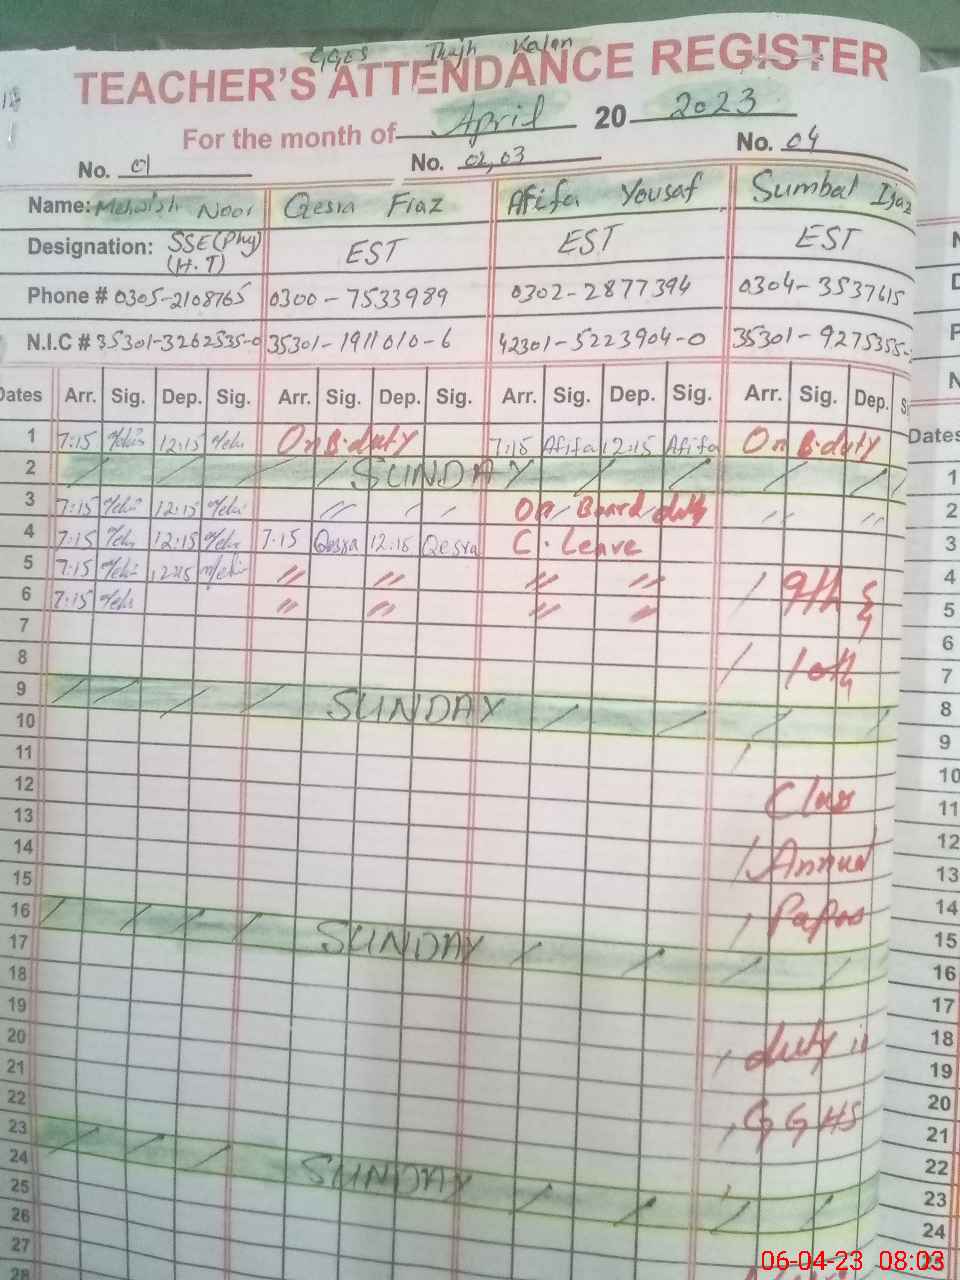 GGES Thajh Kalan
TEACHER'S ATTENDANCE REGISTER
For the month of April 20 2023
No. 01 No. 02,03 No. 04
Name: Mehwish Noor Qesra Fiaz Afifa Yousaf Sumbal Ijaz
Designation: SSE(Phy) (H.T) EST EST EST
Phone # 0305-2108765 0300-7533989 0302-2877394 0304-3537615
N.I.C # 35301-3262535-0 35301-1911010-6 42301-5223904-0 35301-9275355-
Dates Arr. Sig. Dep. Sig. Arr. Sig. Dep. Sig. Arr. Sig. Dep. Sig. Arr. Sig. Dep. S
1 7:15 12:15 On B.duty 7:15 Afifa 12:15 Afifa On B.duty Dates
2 SUNDAY 1
3 7:15 12:15 " " On Board duty " " 2
4 7:15 12:15 7.15 Qesra 12:15 Qesra C. Leave 3
5 7:15 12:15 " " " " 9th & 4
6 7:15 " " " " 5
7 6
8 10th 7
9 SUNDAY 8
10 9
11 10
12 Class 11
13 12
14 Annual 13
15 14
16 Papers 15
17 SUNDAY 16
18 17
19 18
20 duty in 19
21 20
22 GGHS 21
23 22
24 SUNDAY 23
25 24
26
27
28
06-04-23 08:03